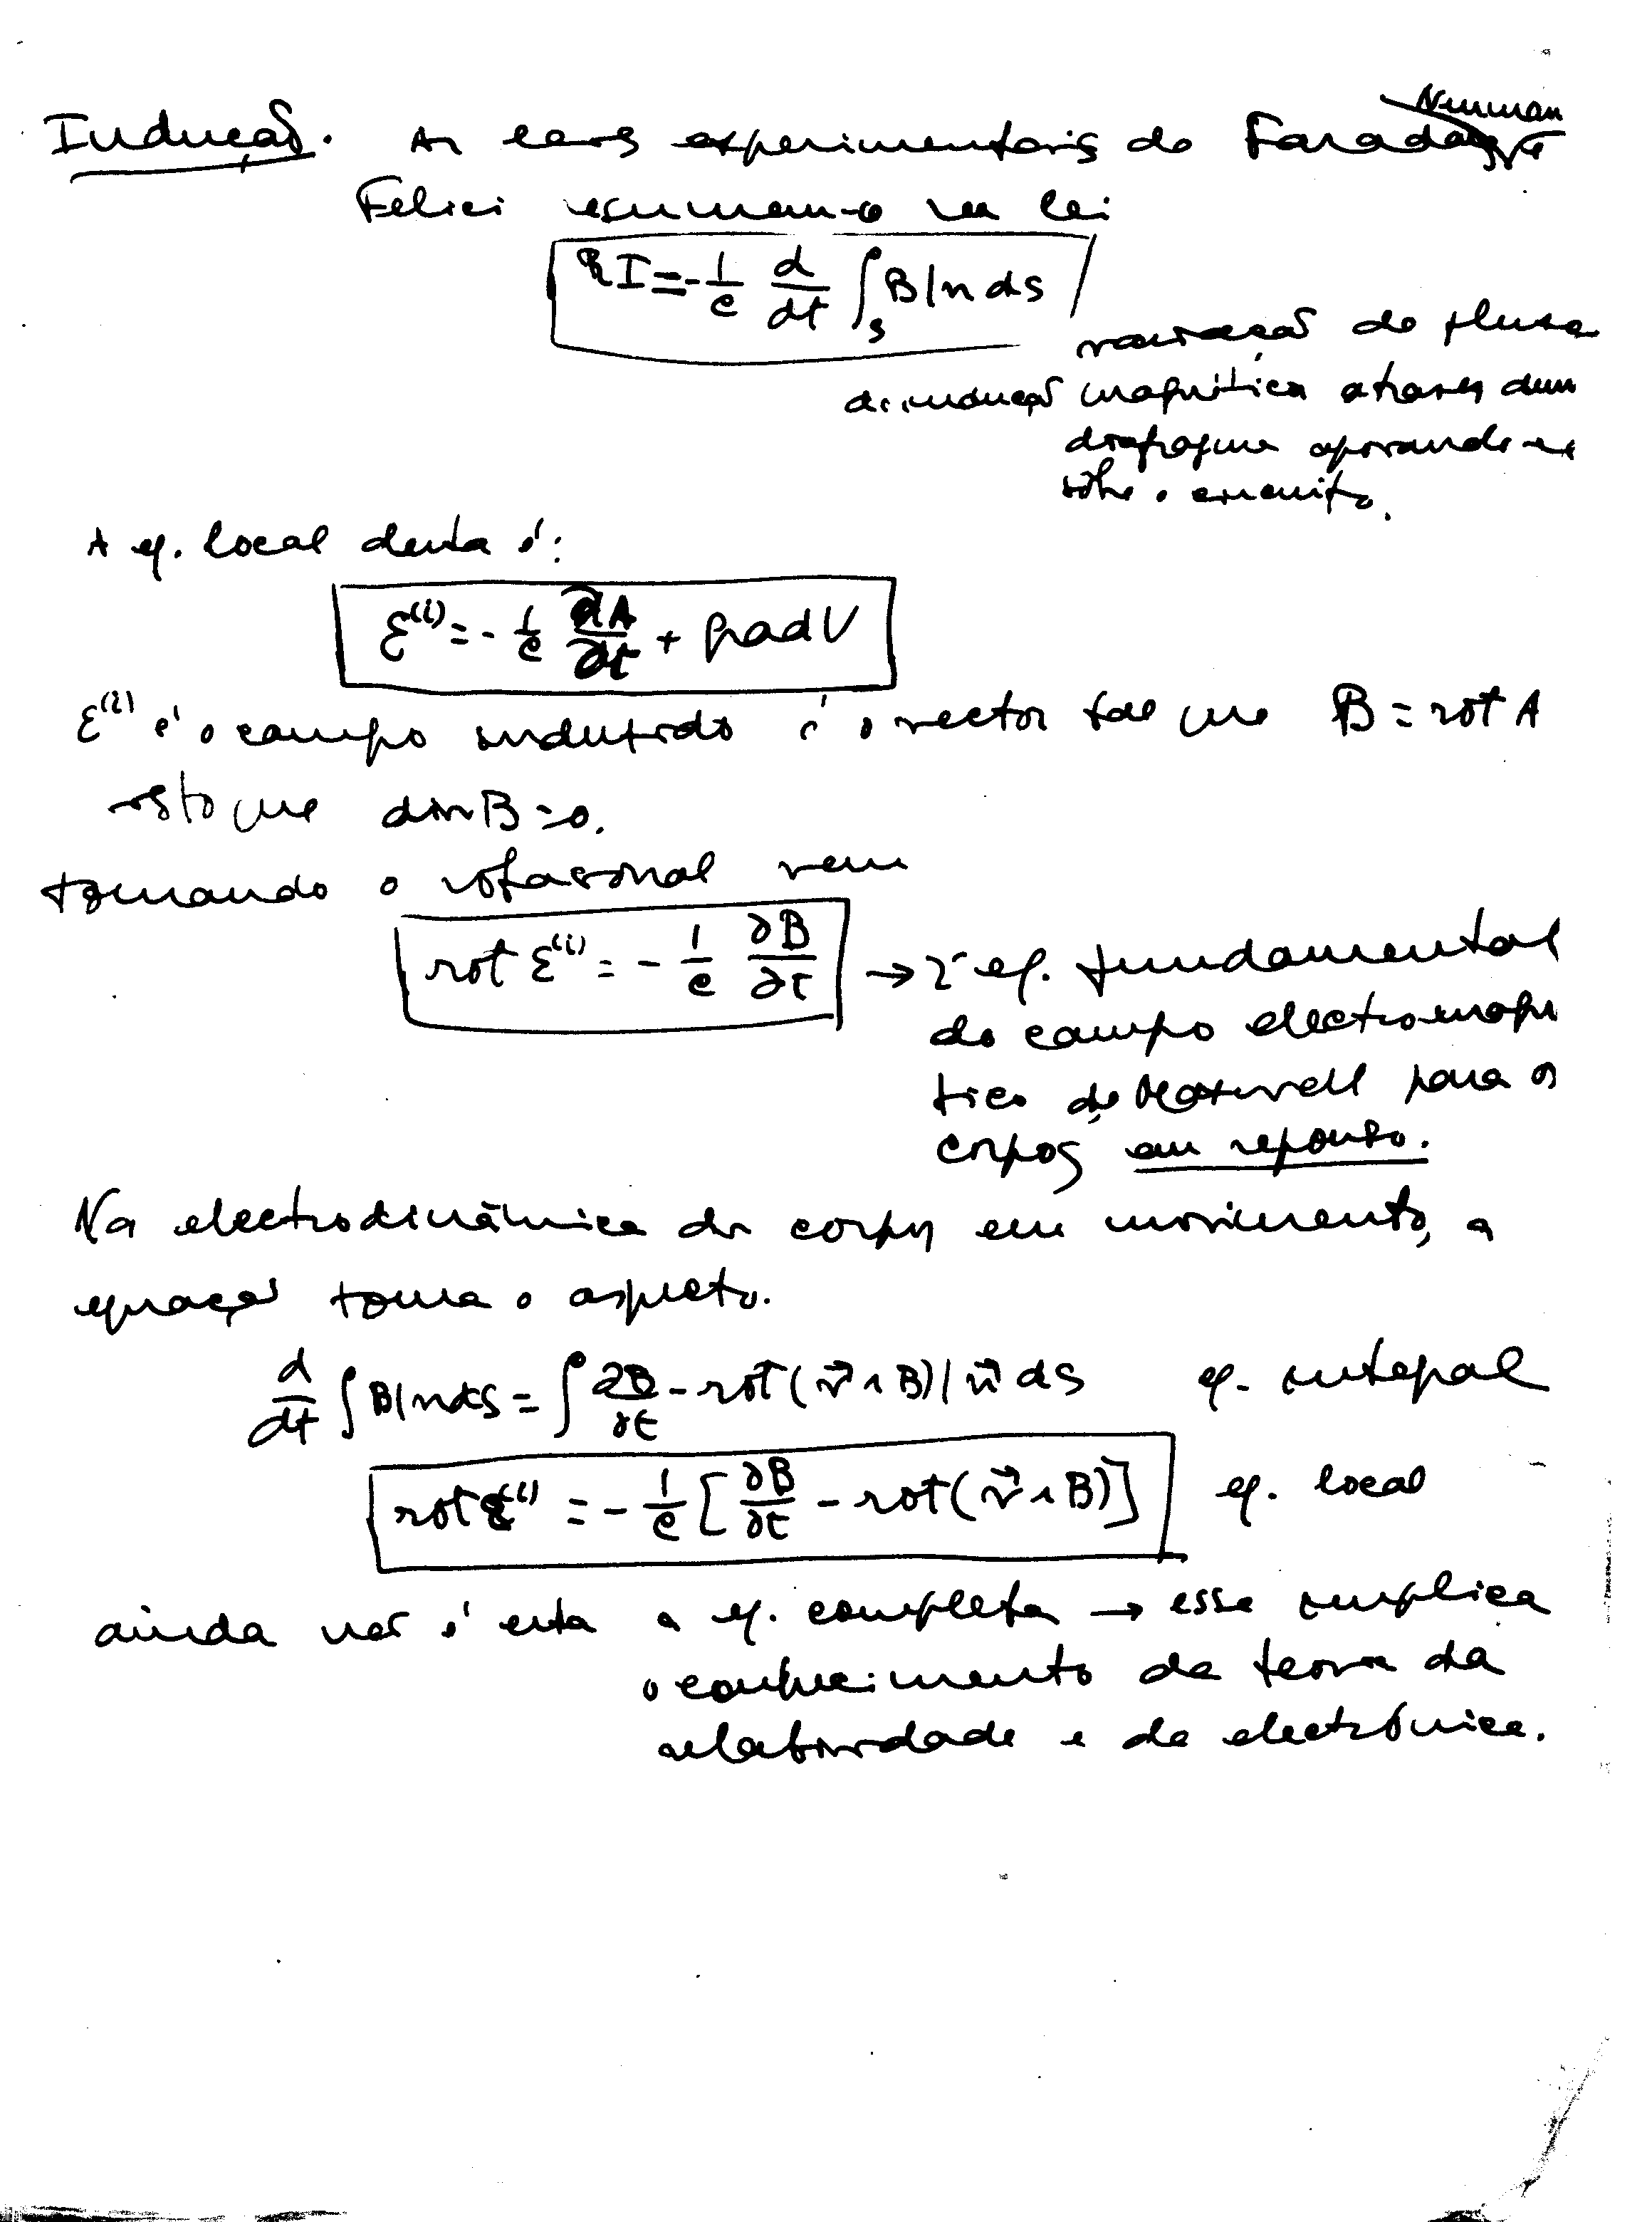 Indução. As leis experimentais de Faraday, Neuman e
Felici resumem-se na lei
RI = -1/c d/dt ∫_S B|n ds
variação do fluxo
da indução magnética através dum
diafragma apoiando-se
sôbre o circuito.
A eq. local desta é:
Ɛ⁽ⁱ⁾ = - 1/c ∂A/∂t + grad V
Ɛ⁽ⁱ⁾ é o campo induzido é o vector tal que B = rot A
visto que div B = 0.
tomando o rotacional vem
rot Ɛ⁽ⁱ⁾ = - 1/c ∂B/∂t → 2ª eq. fundamental
do campo electromagné
tico de Maxwell para os
corpos em repouso.
Na electrodinâmica dos corpos em movimento, a
equação toma o aspecto.
d/dt ∫ B|n ds = ∫ ∂B/∂t - rot(v⃗ ∧ B)|n⃗ ds eq. integral
rot Ɛ⁽ⁱ⁾ = - 1/c [∂B/∂t - rot(v⃗ ∧ B)] eq. local
ainda não é esta a eq. completa → essa implica
o conhecimento da teoria da
relatividade e da electrónica.